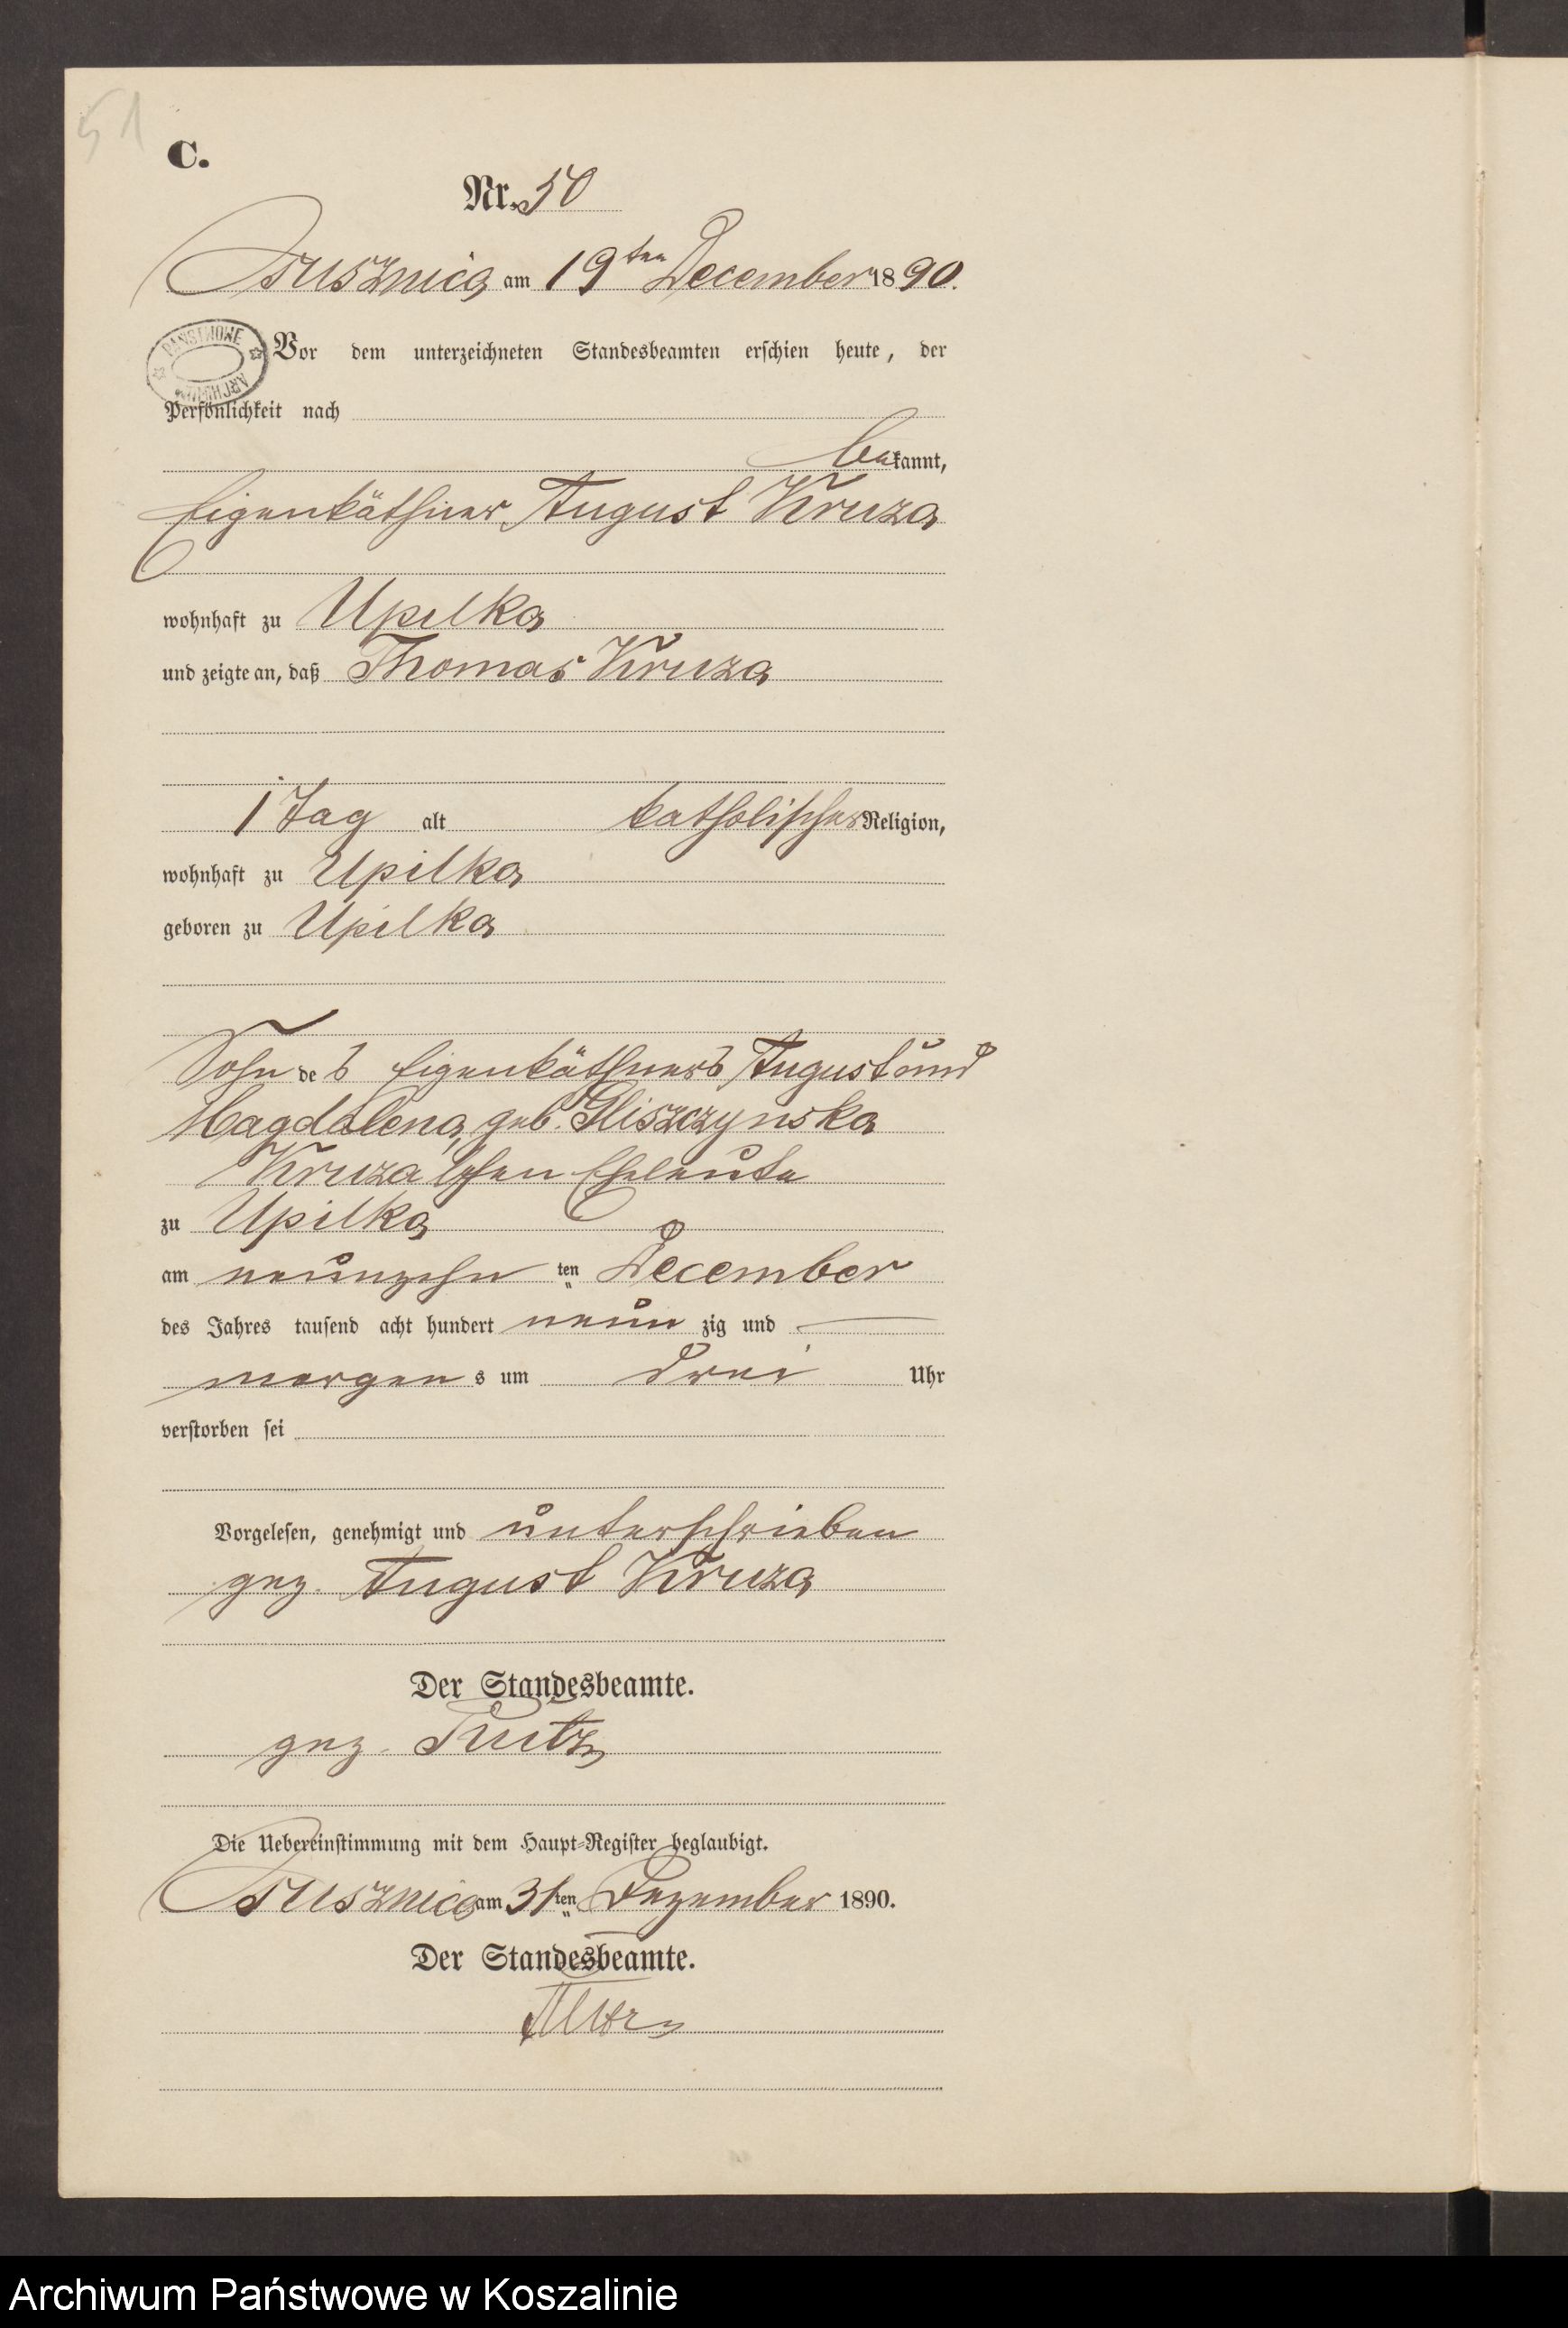 51
C.
Nr. 50
Osusznica am 19ten December 1890.
PAŃSTWOWE
ARCHIWUM
Vor dem unterzeichneten Standesbeamten erschien heute, der
Persönlichkeit nach
bekannt,
Eigenkäthner August Kruza
wohnhaft zu Upilka
und zeigte an, daß Thomas Kruza
1 Tag alt katholischer Religion,
wohnhaft zu Upilka
geboren zu Upilka
Sohn des Eigenkäthners August und
Magdalena, geb. Gliszczynska
Kruza'schen Eheleute
zu Upilka
am neunzehn ten December
des Jahres tausend acht hundert neun zig und —
morgens um drei Uhr
verstorben sei
Vorgelesen, genehmigt und unterschrieben
gez. August Kruza
Der Standesbeamte.
gez.
Die Uebereinstimmung mit dem Haupt-Register beglaubigt.
Osusznica am 31ten Dezember 1890.
Der Standesbeamte.
Archiwum Państwowe w Koszalinie